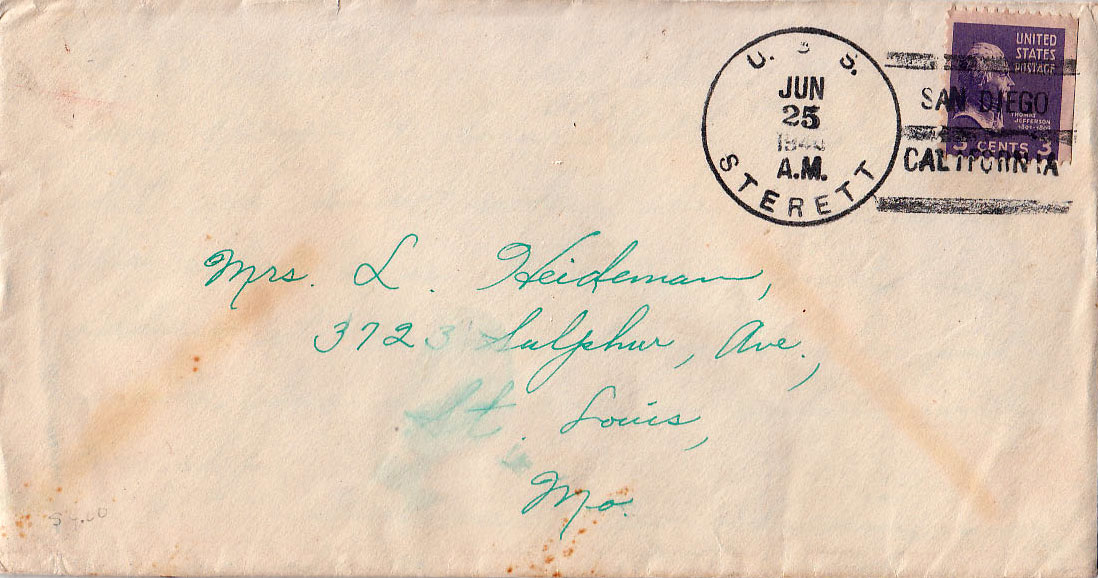 U. S. S.
JUN
25
A.M.
STERETT
SAN DIEGO
CALIFORNIA
UNITED
STATES
POSTAGE
THOMAS
JEFFERSON
3 CENTS 3
Mrs. L. Heideman,
3723 Sulphur, Ave.,
St. Louis,
Mo.